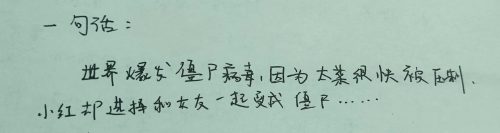 一句话：
世界爆发僵尸病毒，因为太菜很快被压制，
小红却选择和女友一起变成僵尸……